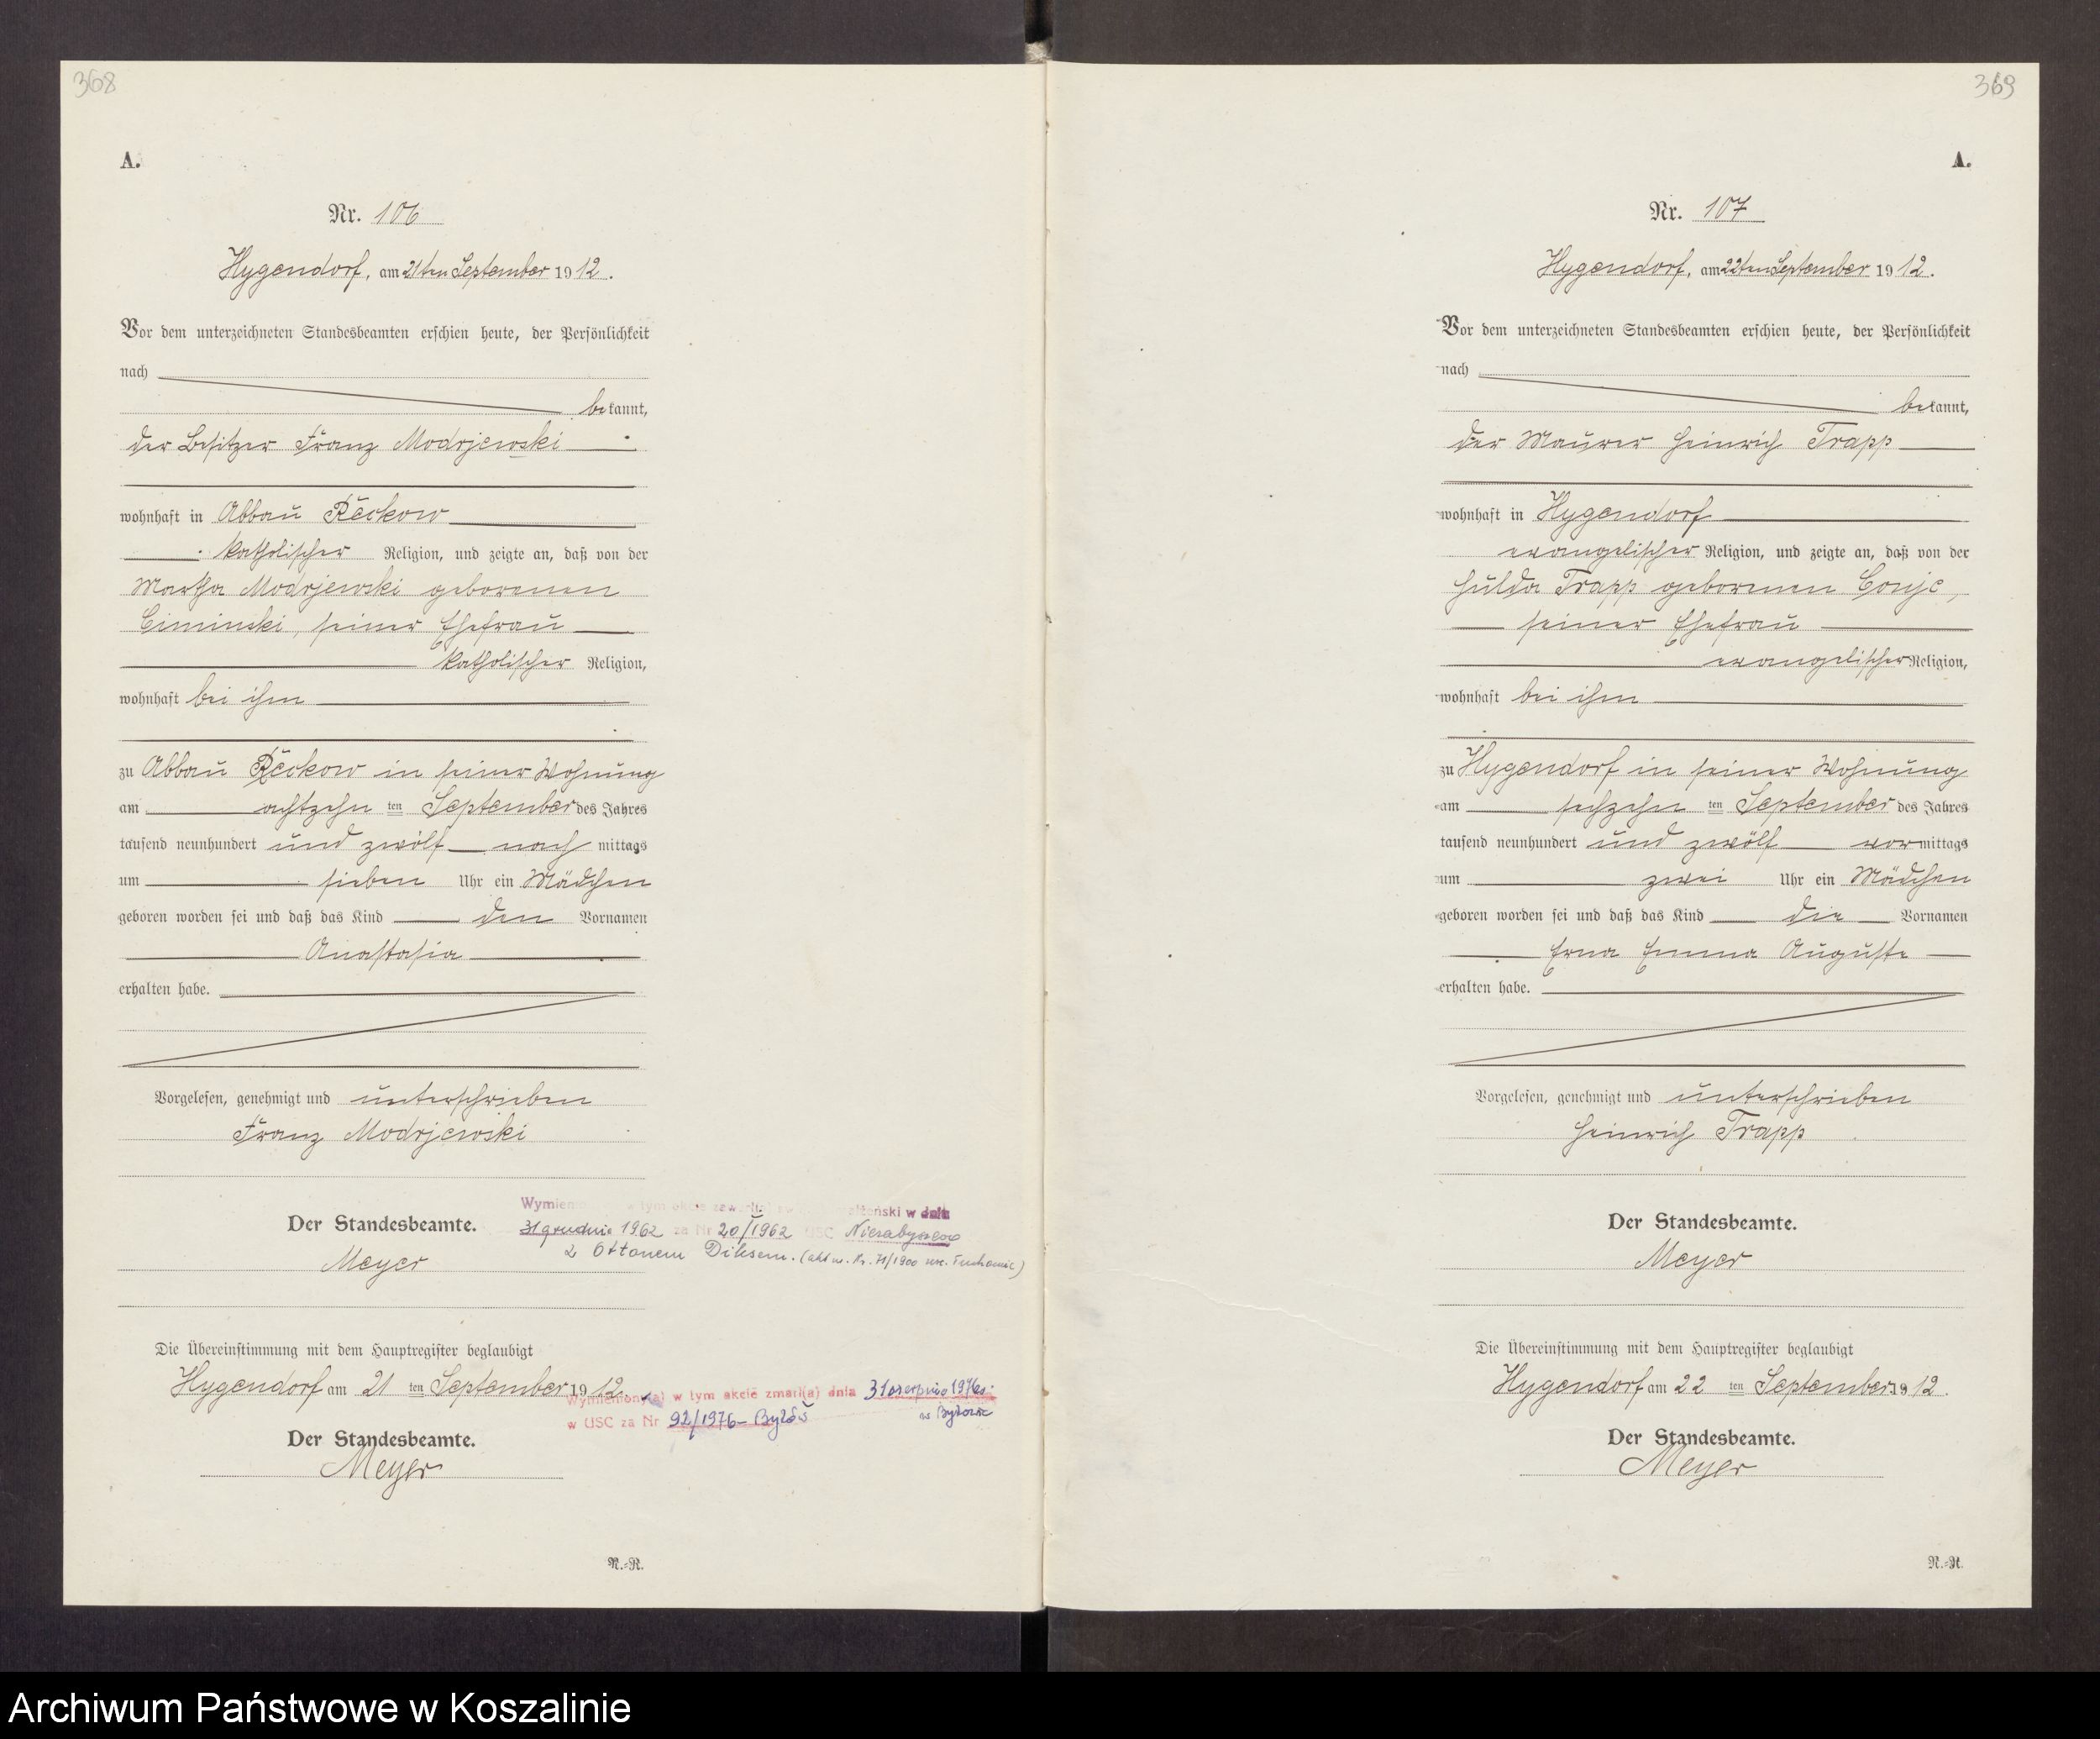 368
A.
Nr. 106
Hygendorf, am 21ten September 1912.
Vor dem unterzeichneten Standesbeamten erschien heute, der Persönlichkeit
nach
bekannt,
der Besitzer Franz Modrjewski
wohnhaft in Abbau Reckow
katholischer Religion, und zeigte an, daß von der
Martha Modrjewski geborenen
Ciminski, seiner Ehefrau
katholischer Religion,
wohnhaft bei ihm
zu Abbau Reckow in seiner Wohnung
am achtzehn ten September des Jahres
tausend neunhundert und zwölf nach mittags
um sieben Uhr ein Mädchen
geboren worden sei und daß das Kind den Vornamen
Anastasia
erhalten habe.
Vorgelesen, genehmigt und unterschrieben
Franz Modrjewski
Wymien w tym akcie żeński w dniu
31 grudnia 1962 za Nr 20/1962 USC
z Ottonem (akt ur. Nr. 71/1900 usc. Tuchomie)
Der Standesbeamte.
Meyer
Die Übereinstimmung mit dem Hauptregister beglaubigt
Hygendorf am 21 ten September 1912.
Wymieniony(a) w tym akcie zmarł(a) dnia 31 sierpnia 1976r.
w Bytowie
w USC za Nr 92/1976 - Bytów
Der Standesbeamte.
Meyer
N.=N.
369
A.
Nr. 107
Hygendorf, am 22ten September 1912.
Vor dem unterzeichneten Standesbeamten erschien heute, der Persönlichkeit
nach
bekannt,
der Maurer Heinrich Trapp
wohnhaft in Hygendorf
evangelischer Religion, und zeigte an, daß von der
Hulda Trapp geborenen
seiner Ehefrau
evangelischer Religion,
wohnhaft bei ihm
zu Hygendorf in seiner Wohnung
am sechzehn ten September des Jahres
tausend neunhundert und zwölf vormittags
um zwei Uhr ein Mädchen
geboren worden sei und daß das Kind die Vornamen
Erna Emma Auguste
erhalten habe.
Vorgelesen, genehmigt und unterschrieben
Heinrich Trapp
Der Standesbeamte.
Meyer
Die Übereinstimmung mit dem Hauptregister beglaubigt
Hygendorf am 22 ten September 1912.
Der Standesbeamte.
Meyer
N.=N.
Archiwum Państwowe w Koszalinie